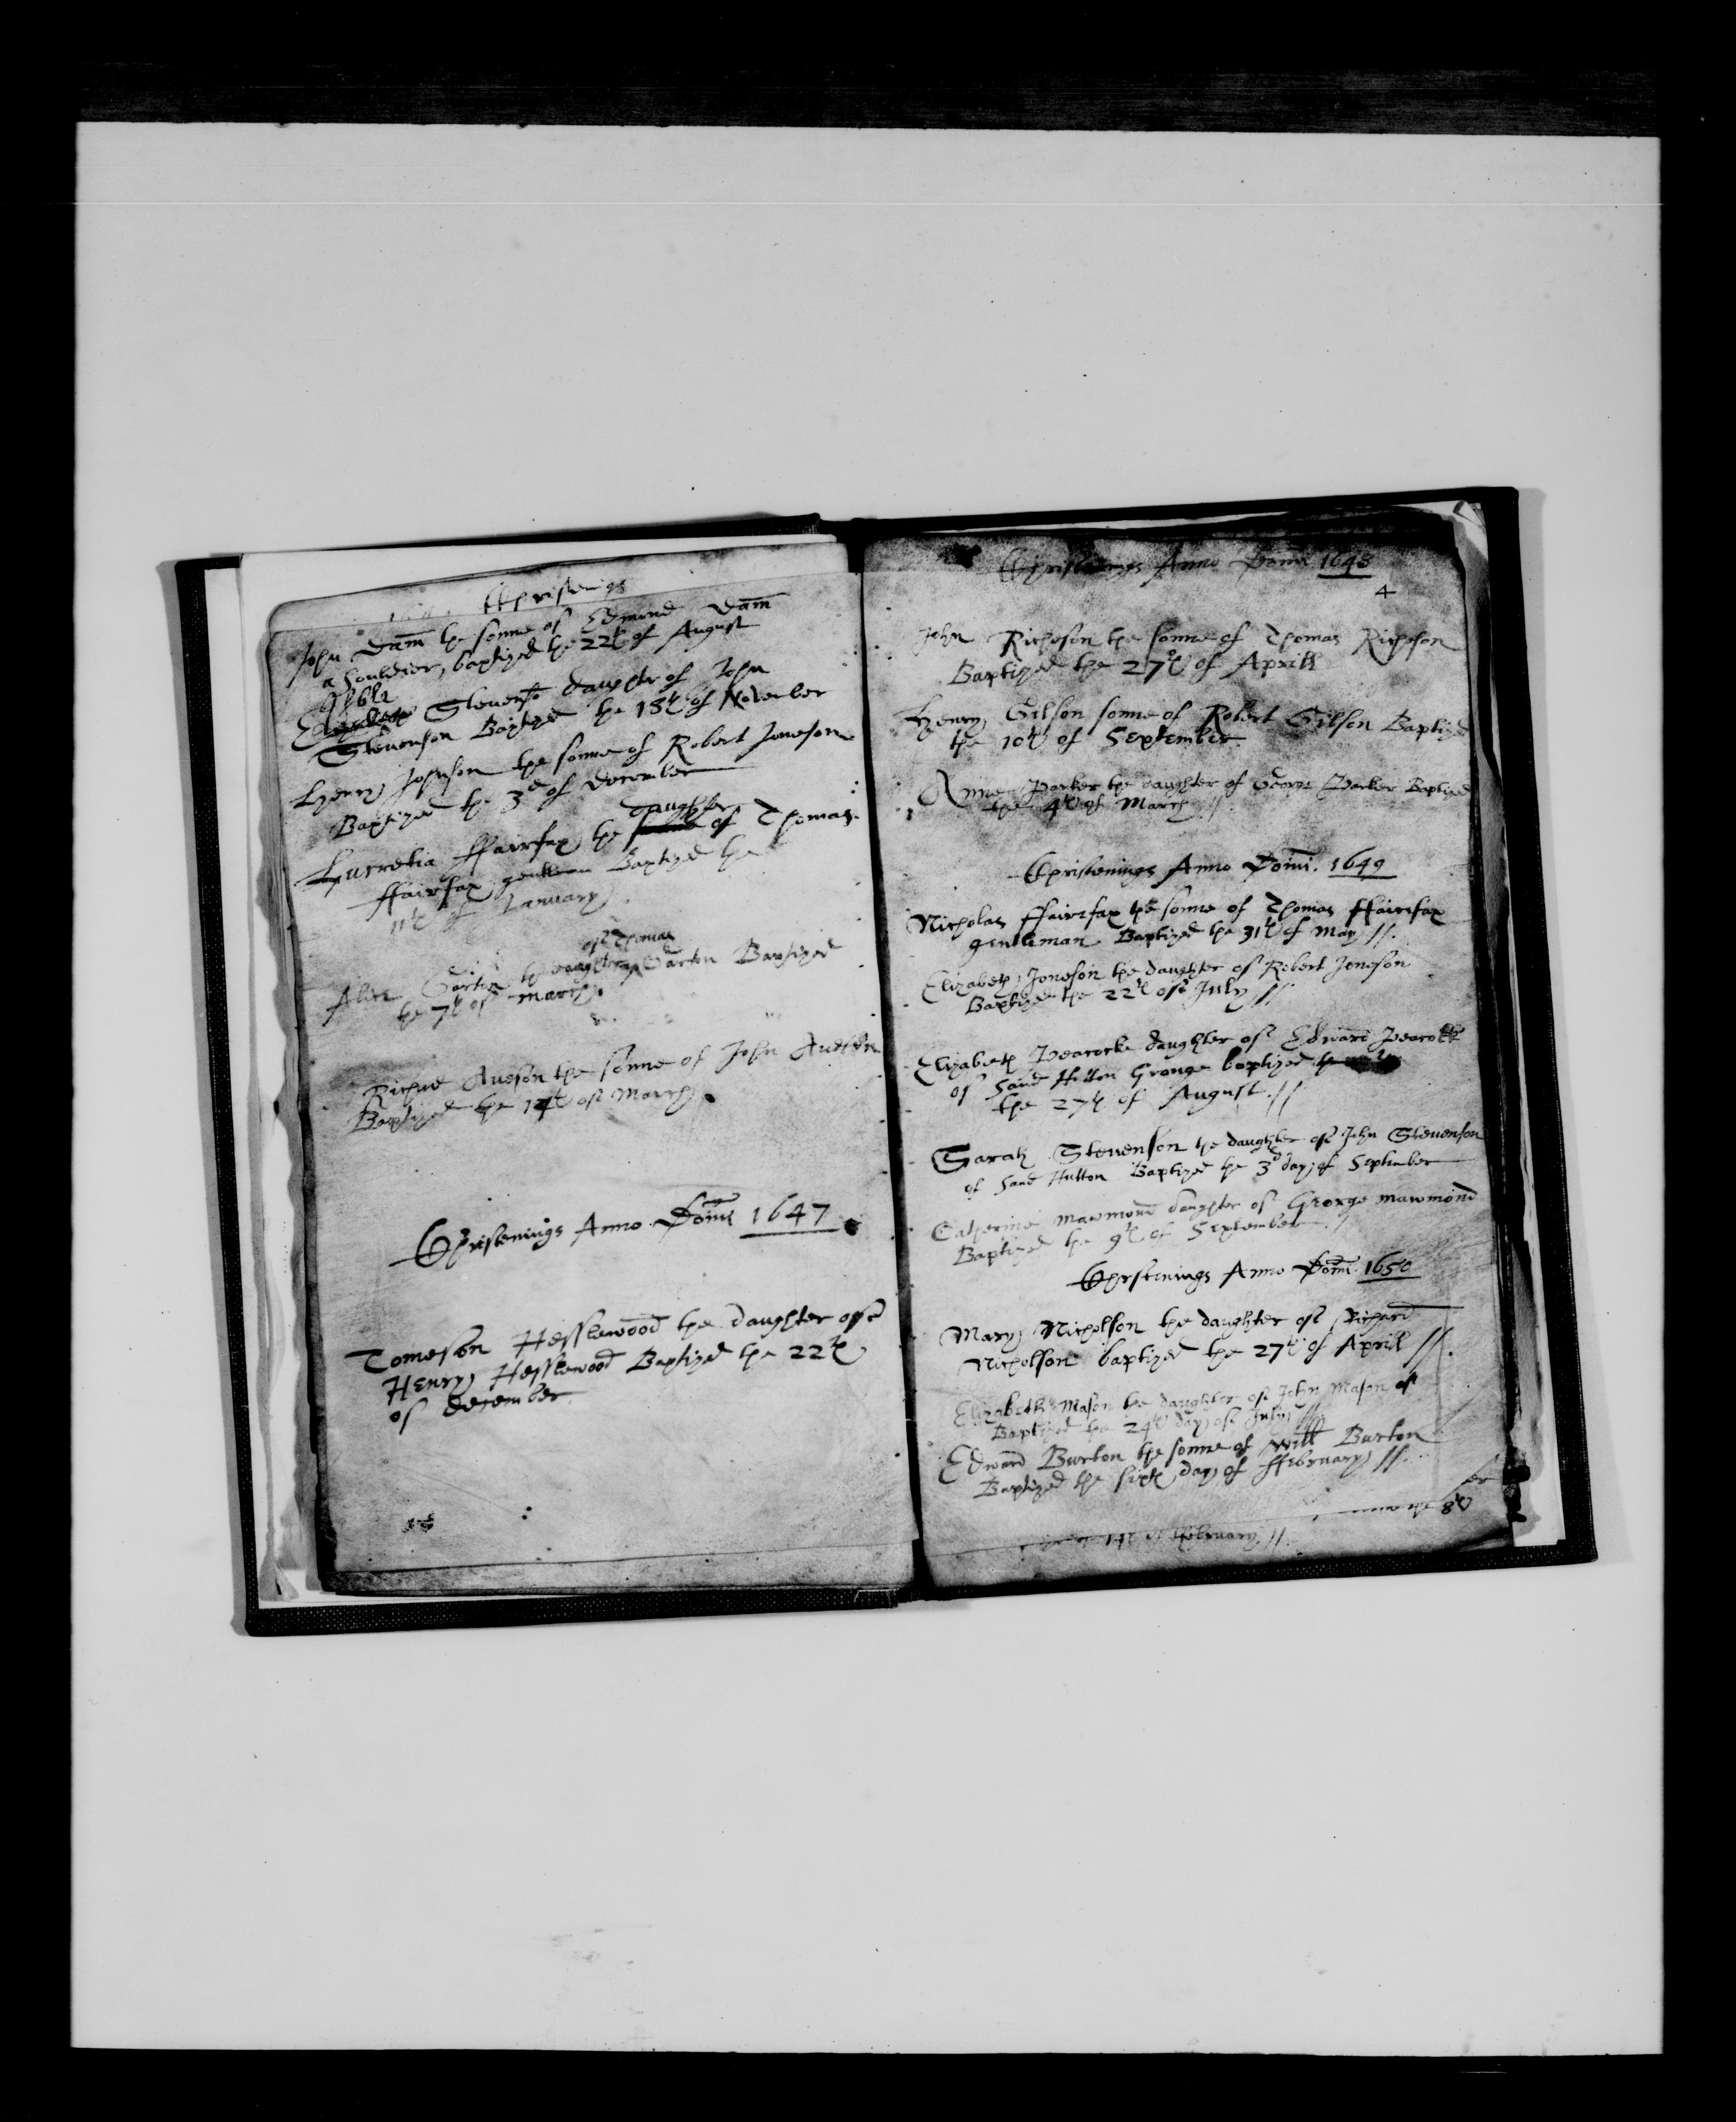 Christenings
John Dam the sonne of Edmond Dam
a souldier, baptized the 22th of August
Stevenso daughter of John
Stevenson Baptized the 18th of November
Henry Johnson the sonne of Robert Joneson
Baptized the 3d of December
daughter
Lucretia ffairfax the of Thomas
ffairfax gentleman Baptized the
11th of January
of Thomas
Alice Barton the daughter Barton Baptized
the 7th of March
Richard Aueson the sonne of John Aueson
Baptized the 14th of March
Christenings Anno Domi 1647
Tomeson Hesslewood the daughter of
Henry Hesslewood Baptized the 22th
of December
Christenings Anno Domi 1648
4
John Richeson the sonne of Thomas Richeson
Baptized the 27th of Aprill
Henry Gilson sonne of Robert Gilson Baptized
the 10th of September
Anne Parker the daughter of George Parker Baptized
the 4th of March //
Christenings Anno Domi. 1649
Nicholas ffairfax the sonne of Thomas ffairfax
gentleman Baptized the 31th of May //.
Elizabeth Joneson the daughter of Robert Joneson
Baptized the 22th of July //
Elizabeth Peacocke daughter of Edward Peacocke
of Sand Hutton Grange baptized the
the 27th of August //
Sarah Stevenson the daughter of John Stevenson
of Sand Hutton Baptized the 3d day of September
Catherine Mawmond daughter of George Mawmond
Baptized the 9th of September //
Chrstenings Anno Domi 1650
Mary Nicholson the daughter of Richard
Nicholson baptized the 27th of April //.
Elizabeth Mason the daughter of John Mason of
Baptized the 24th day of July //
Edward Burton the sonne of Will Burton
Baptized the sixth day of ffebruary //.
the 8th
14th of ffebruary //.